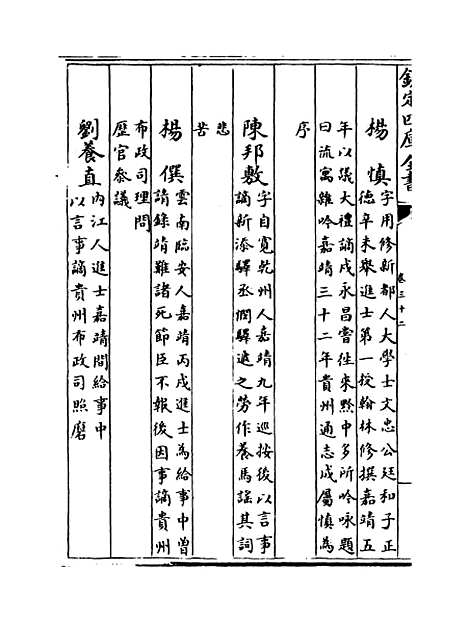 欽定四庫全書
卷三十二
楊慎字用修新都人大學士文忠公廷和子正
德辛未舉進士第一授翰林修撰嘉靖五
年以議大禮謫戍永昌嘗往來黔中多所吟咏題
曰流寓雜吟嘉靖三十二年貴州通志成屬慎為
序
陳邦敷字自寬乾州人嘉靖九年巡按後以言事
謫新添驛丞憫驛遞之勞作養馬謡其詞
悲
苦
楊僎雲南臨安人嘉靖丙戌進士為給事中曾
請錄靖難諸死節臣不報後因事謫貴州
布政司理問
歷官叅議
劉養直内江人進士嘉靖間給事中
以言事謫貴州布政司照磨